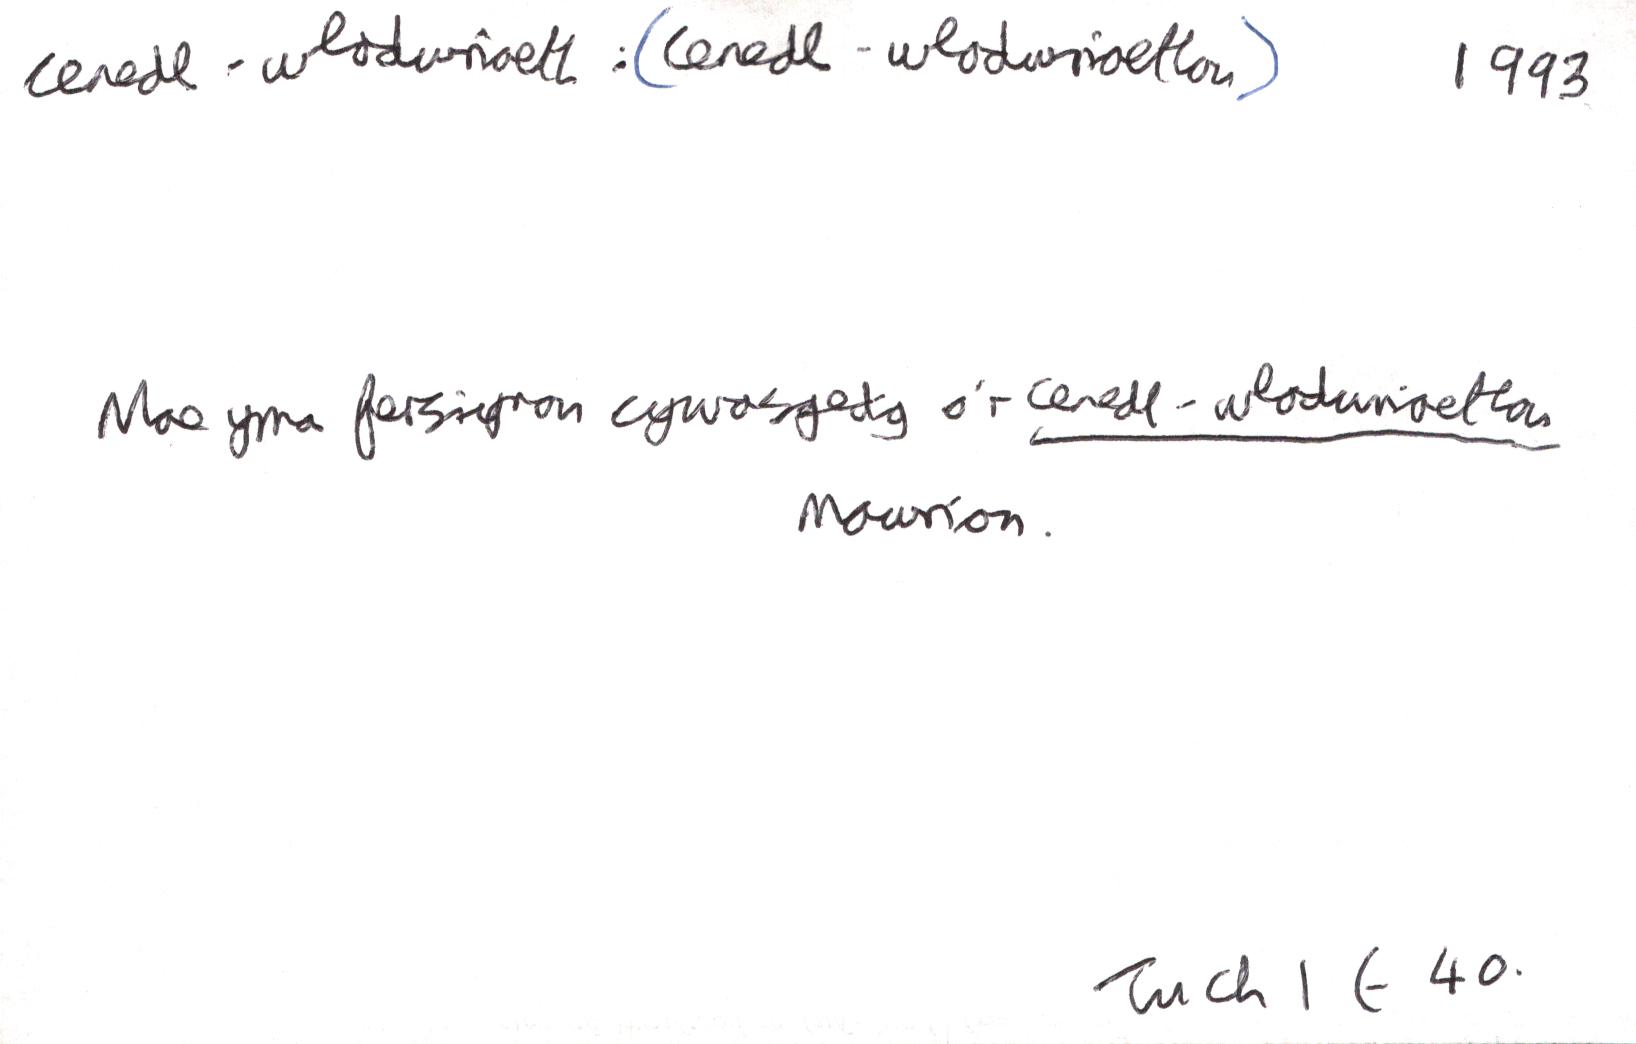 cenedl-wlodwriaeth : (cenedl-wlodwriaethau) 1993
Mae yma fersiynon cywasgedig o'r cenedl-wlodwriaethau
Mawrion.
1 t 40.